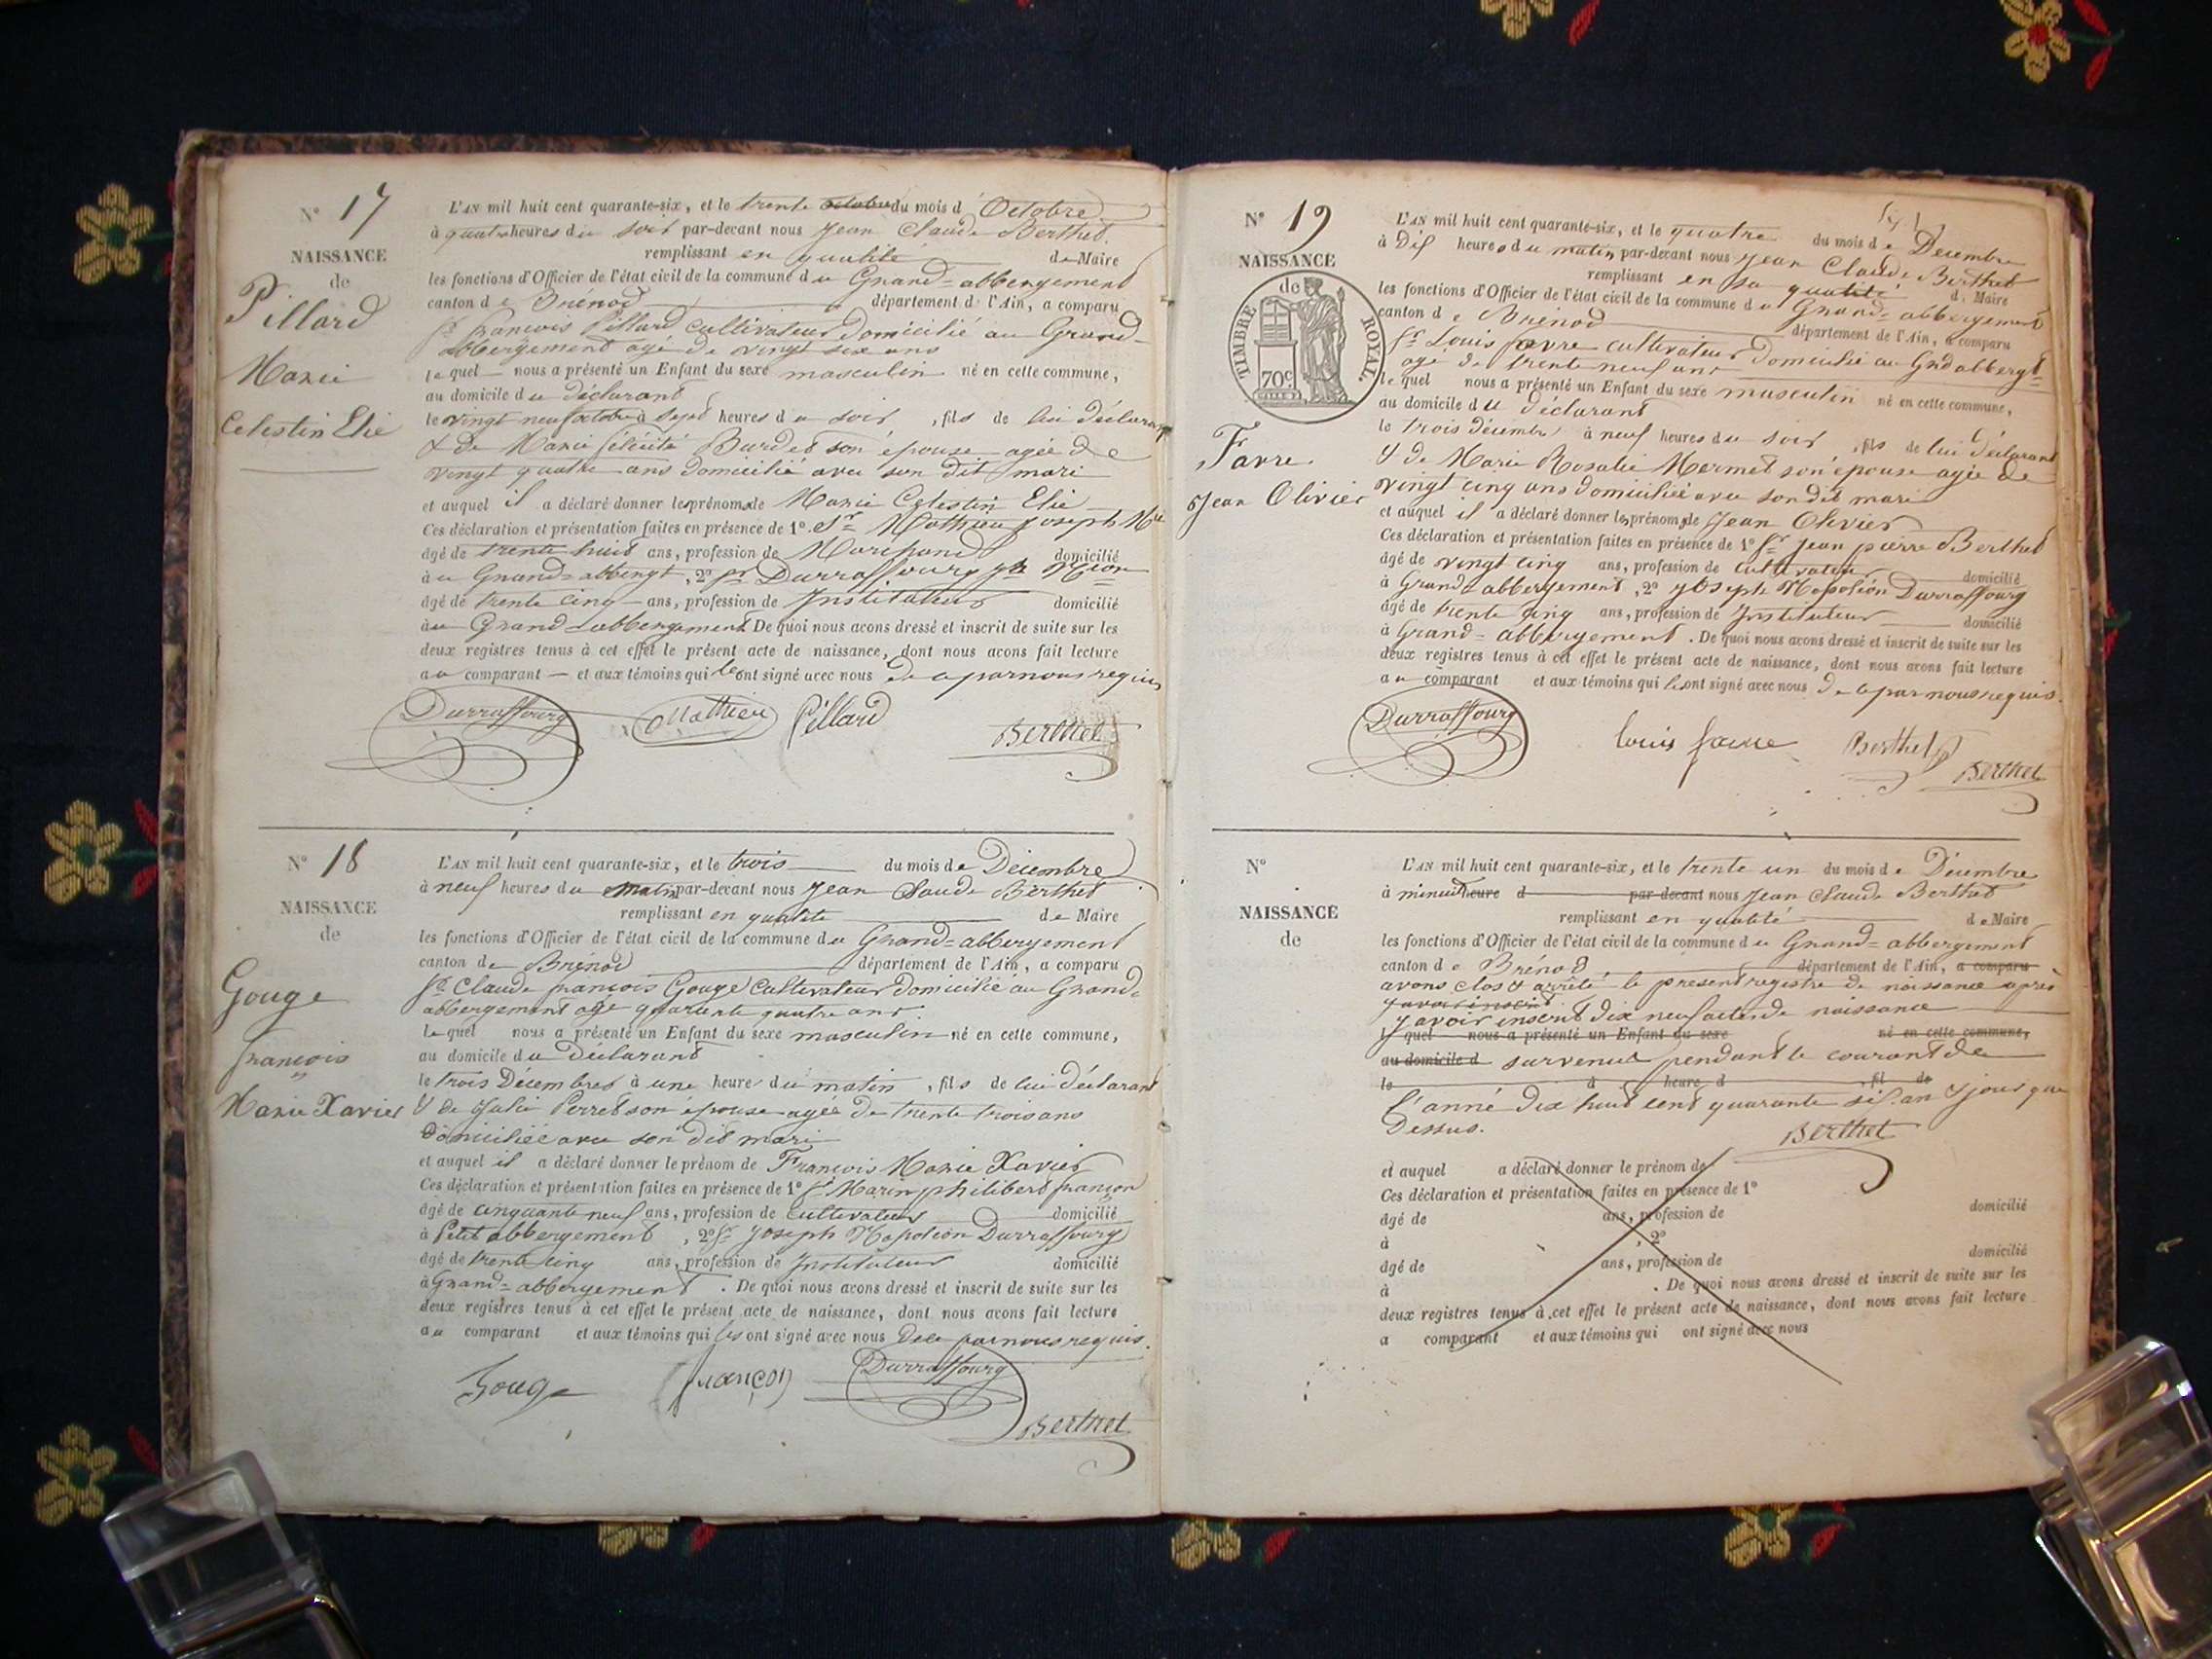 N° 17
NAISSANCE
de
Pillard
Marie
Celestin Elie
L'AN mil huit cent quarante-six, et le trente octobre du mois d'Octobre
à quatre heures du soir par-devant nous Jean Claude Berthet
remplissant en qualité de Maire
les fonctions d'Officier de l'état civil de la commune du Grand-abbergement
canton de Brénod département de l'Ain, a comparu
Sr françois Pillard cultivateur domicilié au Grand-
abbergement agé de vingt six ans
lequel nous a présenté un Enfant du sexe masculin né en cette commune,
au domicile du déclarant
le vingt neuf octobre à sept heures du soir, fils de lui déclarant
& de Marie félicité Burdet son épouse agée de
vingt quatre ans domicilié avec son dit mari
et auquel il a déclaré donner les prénoms de Marie Celestin Elie
Ces déclaration et présentation faites en présence de 1° Sr Mathieu Joseph Mie
âgé de trente huit ans, profession de Marchand domicilié
à u Grand=abbergt, 2° sr Durraffourg jh Nion
âgé de trente cinq ans, profession de Instituteur domicilié
à u Grand abbergement De quoi nous avons dressé et inscrit de suite sur les
deux registres tenus à cet effet le présent acte de naissance, dont nous avons fait lecture
au comparant — et aux témoins qui le ont signé avec nous de ce par nous requis
Durraffourg Mathieu Pillard
Berthet
N° 18
NAISSANCE
de
Gouge
françois
Marie Xavier
L'AN mil huit cent quarante-six, et le trois du mois de Décembre
à neuf heures du matin par-devant nous Jean Claude Berthet
remplissant en qualité de Maire
les fonctions d'Officier de l'état civil de la commune du Grand=abbergement
canton de Brénod département de l'Ain, a comparu
Sr Claude françois Gouge cultivateur domicilié au Grand=
abbergement agé quarante quatre ans
lequel nous a présenté un Enfant du sexe masculin né en cette commune,
au domicile du Déclarant
le trois Décembres à une heure du matin, fils de lui déclarant
& de Julie Perret son épouse agée de trente trois ans
Domiciliée avec son dit mari
et auquel il a déclaré donner le prénom de François Marie Xavier
Ces déclaration et présentation faites en présence de 1° sr Marin philibert françon
âgé de cinquante neuf ans, profession de cultivateur domicilié
à Petit abbergement, 2° sr Joseph Napoléon Durraffourg
âgé de trente cinq ans, profession de Instituteur domicilié
à Grand=abbergement. De quoi nous avons dressé et inscrit de suite sur les
deux registres tenus à cet effet le présent acte de naissance, dont nous avons fait lecture
au comparant et aux témoins qui les ont signé avec nous de ce par nous requis.
Gouge françon Durraffourg
Berthet
N° 19
NAISSANCE
de
TIMBRE ROYAL.
70c
Favre
Jean Olivier
L'AN mil huit cent quarante-six, et le quatre du mois de Décembre
à Dix heures du matin, par-devant nous Jean Claude Berthet
remplissant en sa qualité de Maire
les fonctions d'Officier de l'état civil de la commune du Grand=abbergement
canton de Brénod département de l'Ain, a comparu
Sr Louis favre cultivateur Domicilié au Gnd abbergt
agé de trente neuf ans
lequel nous a présenté un Enfant du sexe masculin né en cette commune,
au domicile du déclarant
le trois décembre à neuf heures du soir, fils de lui déclarant
& de Marie Rosalie Mermet son épouse agée de
vingt cinq ans domiciliée avec son dit mari
et auquel il a déclaré donner les prénoms de Jean Olivier
Ces déclaration et présentation faites en présence de 1° Sr Jean pierre Berthet
âgé de vingt cinq ans, profession de cultivateur domicilié
à Grand abbergement, 2° Joseph Napoléon Durraffourg
âgé de trente cinq ans, profession de Instituteur domicilié
à Grand=abbergement. De quoi nous avons dressé et inscrit de suite sur les
deux registres tenus à cet effet le présent acte de naissance, dont nous avons fait lecture
au comparant et aux témoins qui les ont signé avec nous de ce par nous requis.
Durraffourg louis favre Berthet
Berthet
N°
NAISSANCE
de
L'AN mil huit cent quarante-six, et le trente un du mois de Décembre
à minuit heure d par-devant nous Jean Claude Berthet
remplissant en qualité de Maire
les fonctions d'Officier de l'état civil de la commune du Grand=abbergement
canton de Brénod département de l'Ain, a comparu
avons clos & arrêté le present registre de naissance après
y avoir inscrit
y avoir inscrit dix neuf actes de naissance
lequel nous a présenté un Enfant du sexe né en cette commune,
au domicile d survenue pendant le courant de
le à heure d, fil de
l'anné dix huit cent quarante six. an & jour que
Dessus.
Berthet
et auquel a déclaré donner le prénom de
Ces déclaration et présentation faites en présence de 1°
âgé de ans, profession de domicilié
à , 2°
âgé de ans, profession de domicilié
à . De quoi nous avons dressé et inscrit de suite sur les
deux registres tenus à cet effet le présent acte de naissance, dont nous avons fait lecture
a comparant et aux témoins qui ont signé avec nous